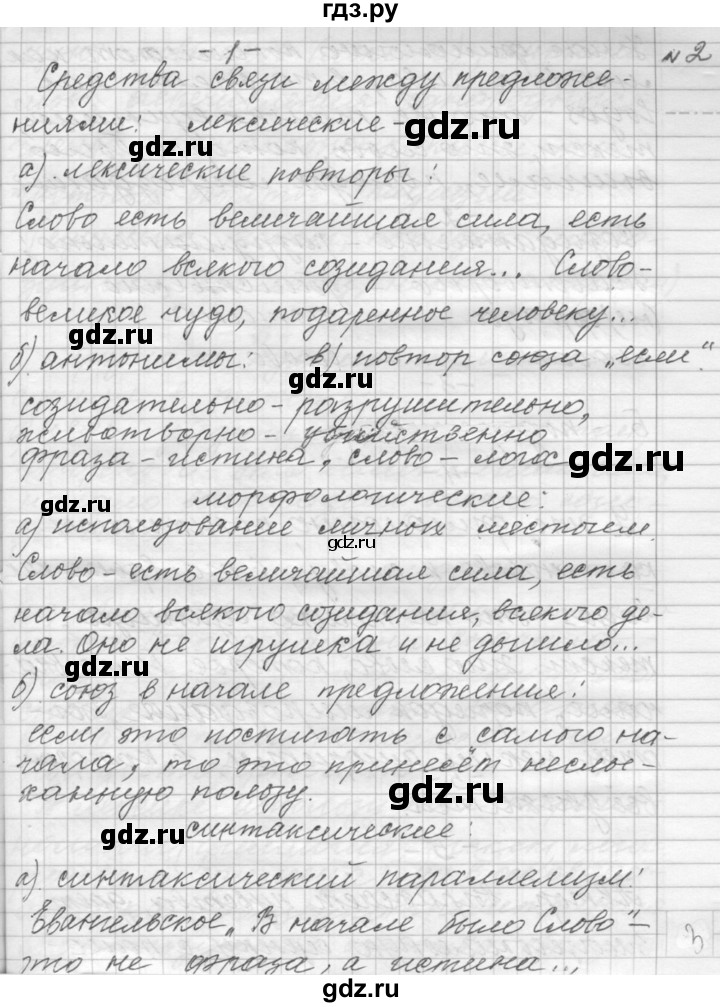 гдз.ру
-1-
№2
Средства связи между предложе-
ниями: лексические-
gdz.ru
gdz.ru
а) лексические повторы:
Слово есть величайшая сила, есть
начало всякого созидания... Слово-
великое чудо, подаренное человеку...
gdz.ru
б) антонимы: в) повтор союза „если".
gdz.ru
созидательно - разрушительно,
животворно - убийственно
фраза - истина, слово - логос
gdz.ru
морфологические:
gdz.ru
а) использование личных местоим.
gdz.ru
Слово - есть величайшая сила, есть
начало всякого созидания, всякого де-
ла. Оно не игрушка и не дышло...
gdz.ru
б) союз в начале предложения:
если это постигать с самого на-
чала, то это принесёт неслы-
ханную пользу.
gdz.ru
gdz.ru
синтаксические:
а) синтаксический параллелизм:
Евангельское „В начале было Слово" -
это не фраза, а истина...
3